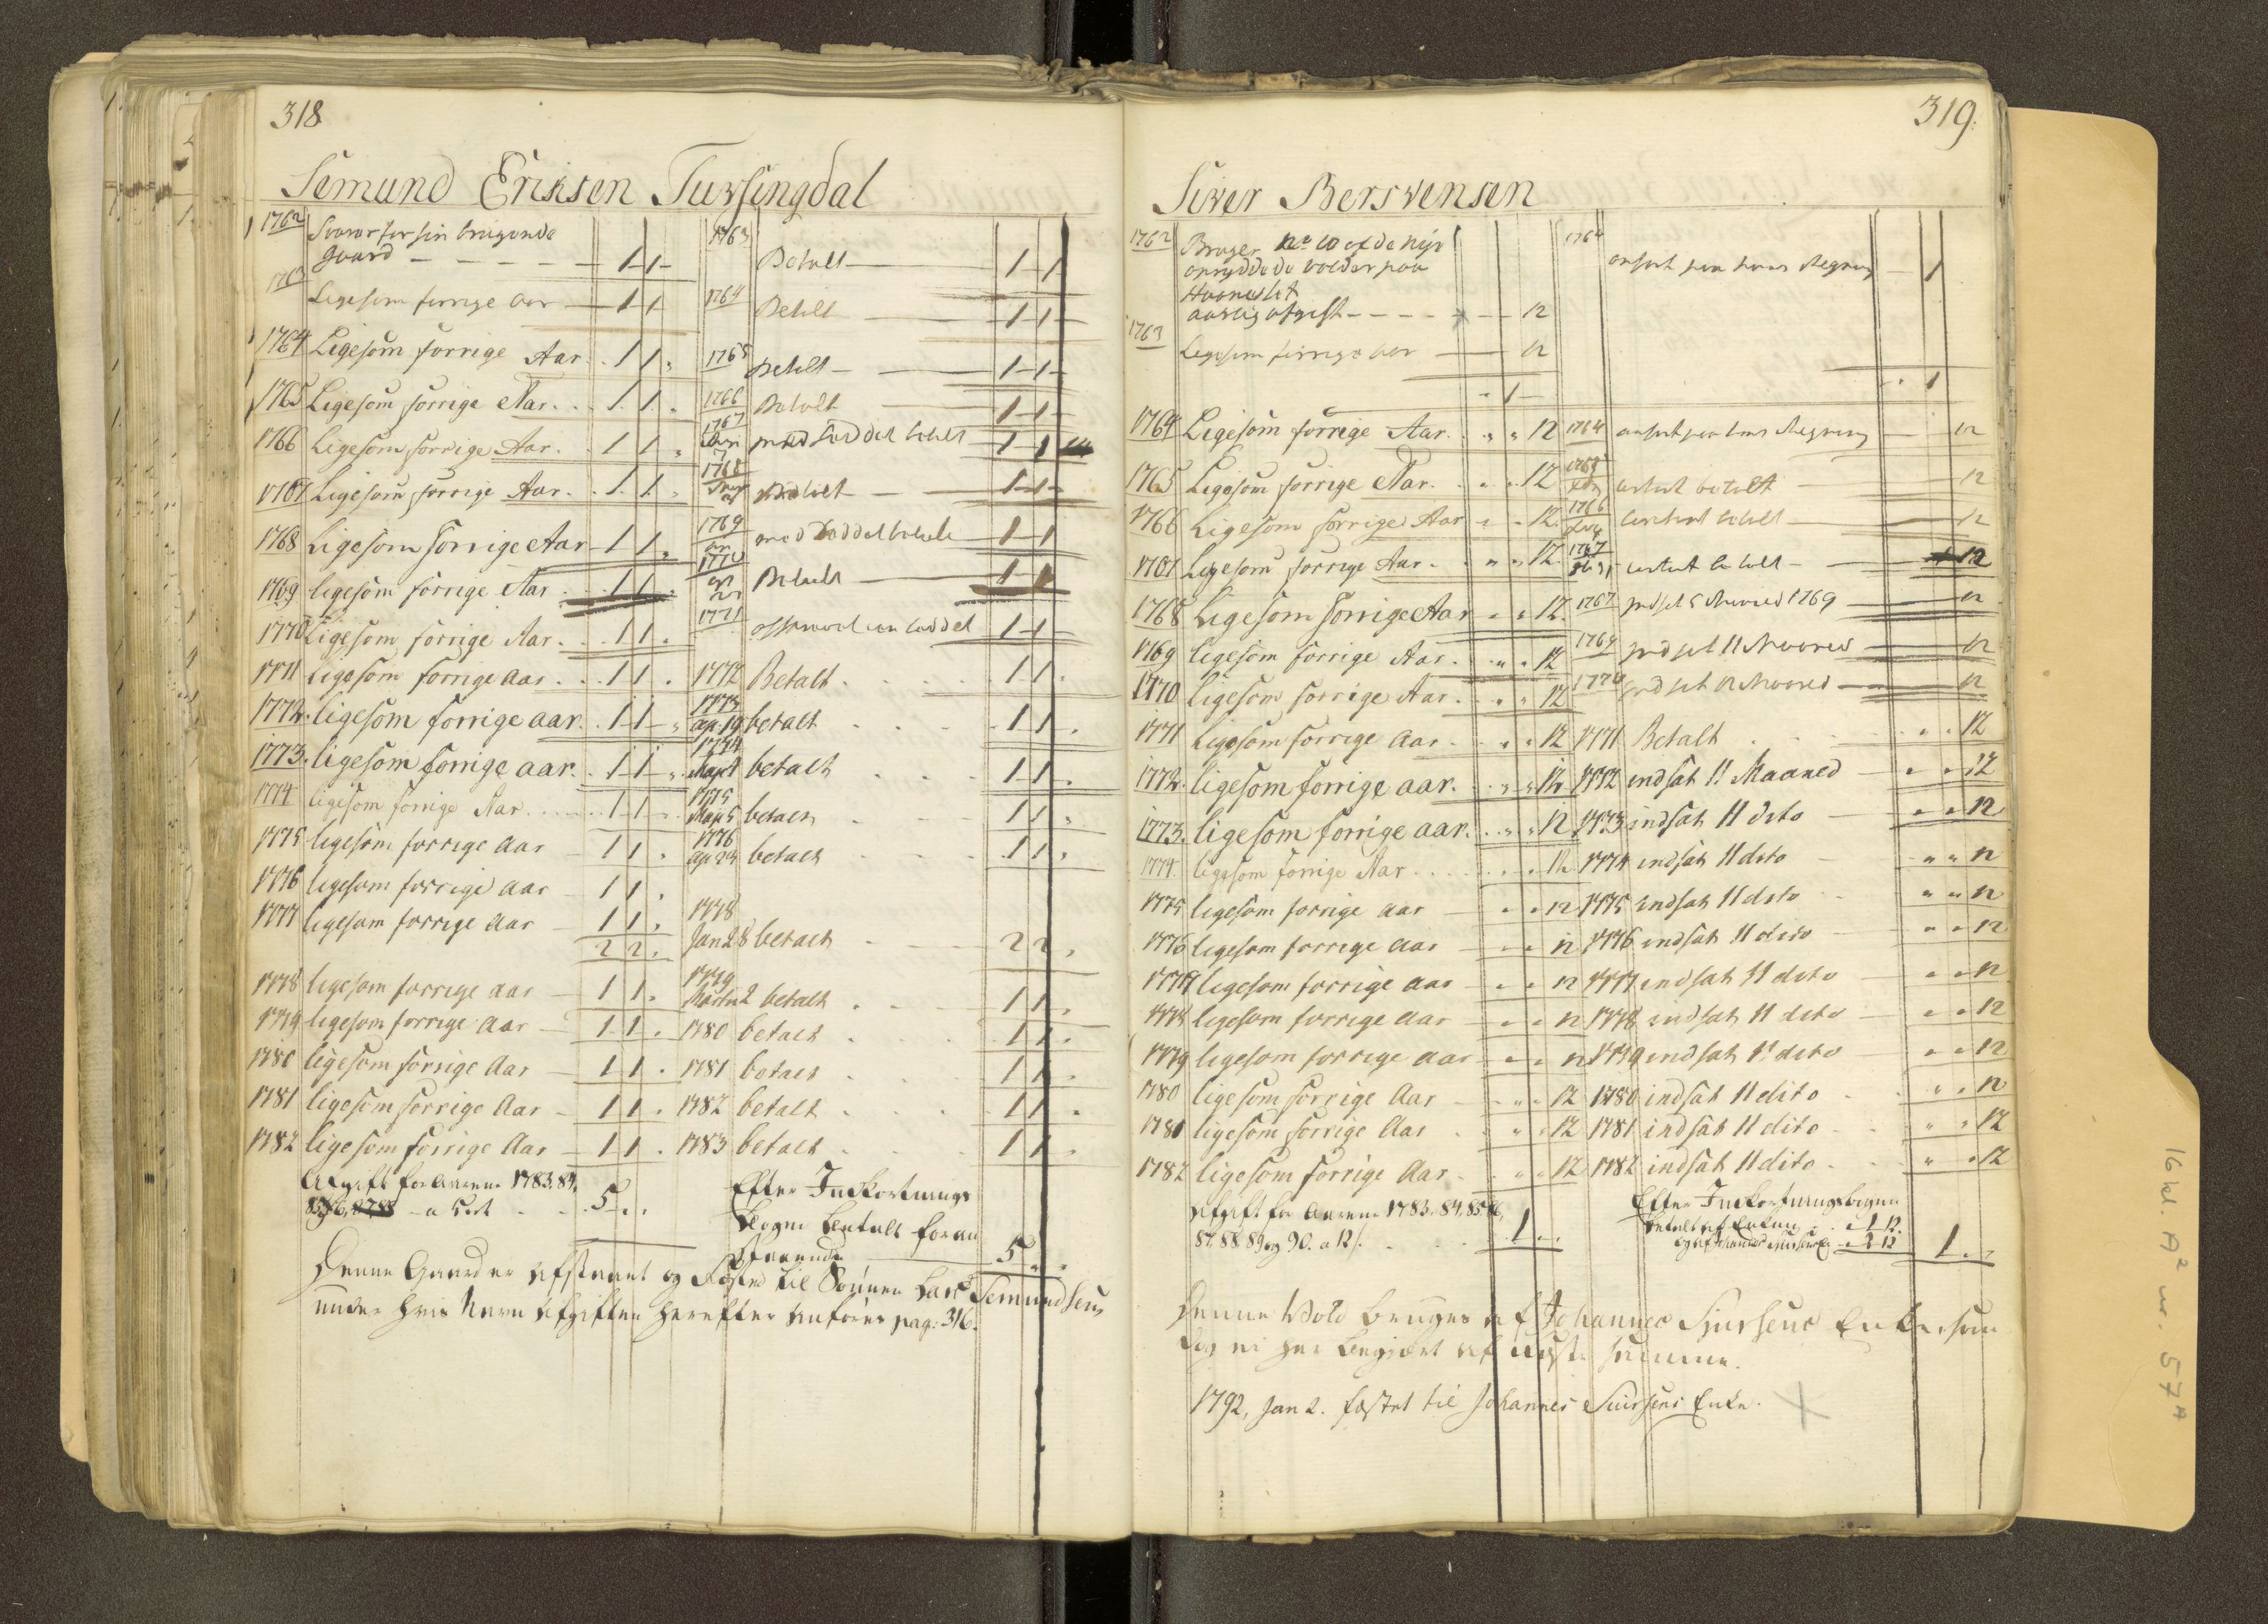 318
Semund Eriksen Tufsingdal
1762 Svarer for sin brugende
Gaard 1 1 1763 Betalt 1 1
1763 Ligesom forrige Aar 1 1 1764 Betalt 1 1
1764 Ligesom forrige Aar. 1 1 „ 1765 Betalt 1 1
1765 Ligesom forrige Aar. 1. 1. „ 1766 Betalt 1 1
1766 Ligesom forrige Aar. 1 1 „ 1767 med betalt 1 1
1767 Ligesom forrige Aar. 1. 1. „ 1768 betalt 1 1
1768 Ligesom forrige Aar 1 1 „ 1769 med 1 1
1769 ligesom forrige Aar 1 1 „ 1770 Betalt 1 1
1770 Ligesom forrige Aar. 1 1 „ 1771 1 1
1771 ligesom forrige aar. 1 1 . 1772 Betalt 1 1.
1772. ligesom forrige aar. 1 1 „ 1773 ap: 19 betalt 1 1 .
1773. ligesom forrige aar. 1 1 „ 1774 betalt 1 1.
1774 ligesom forrige Aar 1 1 „ 1775 betalt 1 1 „
1775 ligesom forrige aar 1 1 . 1776 ap 24 betalt 1 1 .
1776 ligesom forrige aar 1 1 .
1777 ligesom forrige aar 1 1 . 1778
2 2 . Jan 28 betalt 2 2 .
1778 ligesom forrige aar 1 1 . 1779 2 betalt 1 1 .
1779 ligesom forrige aar 1 1 . 1780 betalt 1 1 .
1780 ligesom forrige Aar 1 1 . 1781 betalt 1 1 .
1781 ligesom forrige Aar 1 1 . 1782 betalt 1 1 .
1782 ligesom forrige Aar 1 1 . 1783 betalt 1 1 .
Afgift for Aarene 1783, 84, Efter Indkortnings
85, 86, a 5 . . Bogen betalt foran
staaende 5 „ „
Denne Gaard er afstaaet og fæsted til Sönnen Lars Semundsen,
under hvis Navn Afgiften herefter anföres pag: 316.
319.
Siver Bersvensen
1762 Bruger No 10 af de nye
opryddede volder paa
aarlig afgift 12 1764 anført paa hans Regning 1
1763 Ligesom forrige aar 12
„ 1 „ 1
1764 Ligesom forrige Aar. „ „ 12 1764 anført paa hans Regning 12
1765 Ligesom forrige Aar. „ „ 12 1765 betalt 12
1766 Ligesom forrige Aar „ „ 12. 1766 betalt 12
1767 Ligesom forrige Aar. „ „ 12. 1767 betalt 12
1768 Ligesom forrige Aar „ „ 12. 1767 indsat Maaned 1769 12
1769 ligesom forrige Aar. „ „ 12 1769 indsat 11 Maaned 12
1770 ligesom forrige Aar. „ „ 12 1770 indsat 11 Maaned 12
1771 Ligesom forrige aar. „ „ 12 1771 Betalt „ „ 12
1772. ligesom forrige aar. „ „ 12 1772 indsat 11 Maaned „ „ 12
1773. ligesom forrige aar. „ „ 12 1773 indsat 11 dito „ „ 12
1774 ligesom forrige Aar „ „ 12 1774 indsat 11 dito „ „ 12
1775 ligesom forrige aar „ „ 12 1775 indsat 11 dito „ „ 12
1776 ligesom forrige aar „ „ 12 1776 indsat 11 dito „ „ 12
1777 ligesom forrige aar „ „ 12 1777 indsat 11 dito „ „ 12
1778 ligesom forrige aar „ „ 12 1778 indsat 11 dito „ „ 12
1779 ligesom forrige aar „ „ 12 1779 indsat 11 dito „ „ 12
1780 ligesom forrige Aar „ „ 12 1780 indsat 11 dito „ „ 12
1781 ligesom forrige Aar „ „ 12 1781 indsat 11 dito „ „ 12
1782 ligesom forrige Aar „ „ 12 1782 indsat 11 dito „ „ 12
Afgift for Aarene 1783, 84, 85, 86, Efter Indkortningsbogen
87, 88 89 og 90. a 12 1 „ „ betalt af Enken
og af 1 „ „
Denne Vold bruges af Johannes Siursens Enke, som
dog ei har begjært at samme.
1792, Jan 2. fæstet til Johannes Siursens Enke.
16 kl. A² nr. 57ᴬ